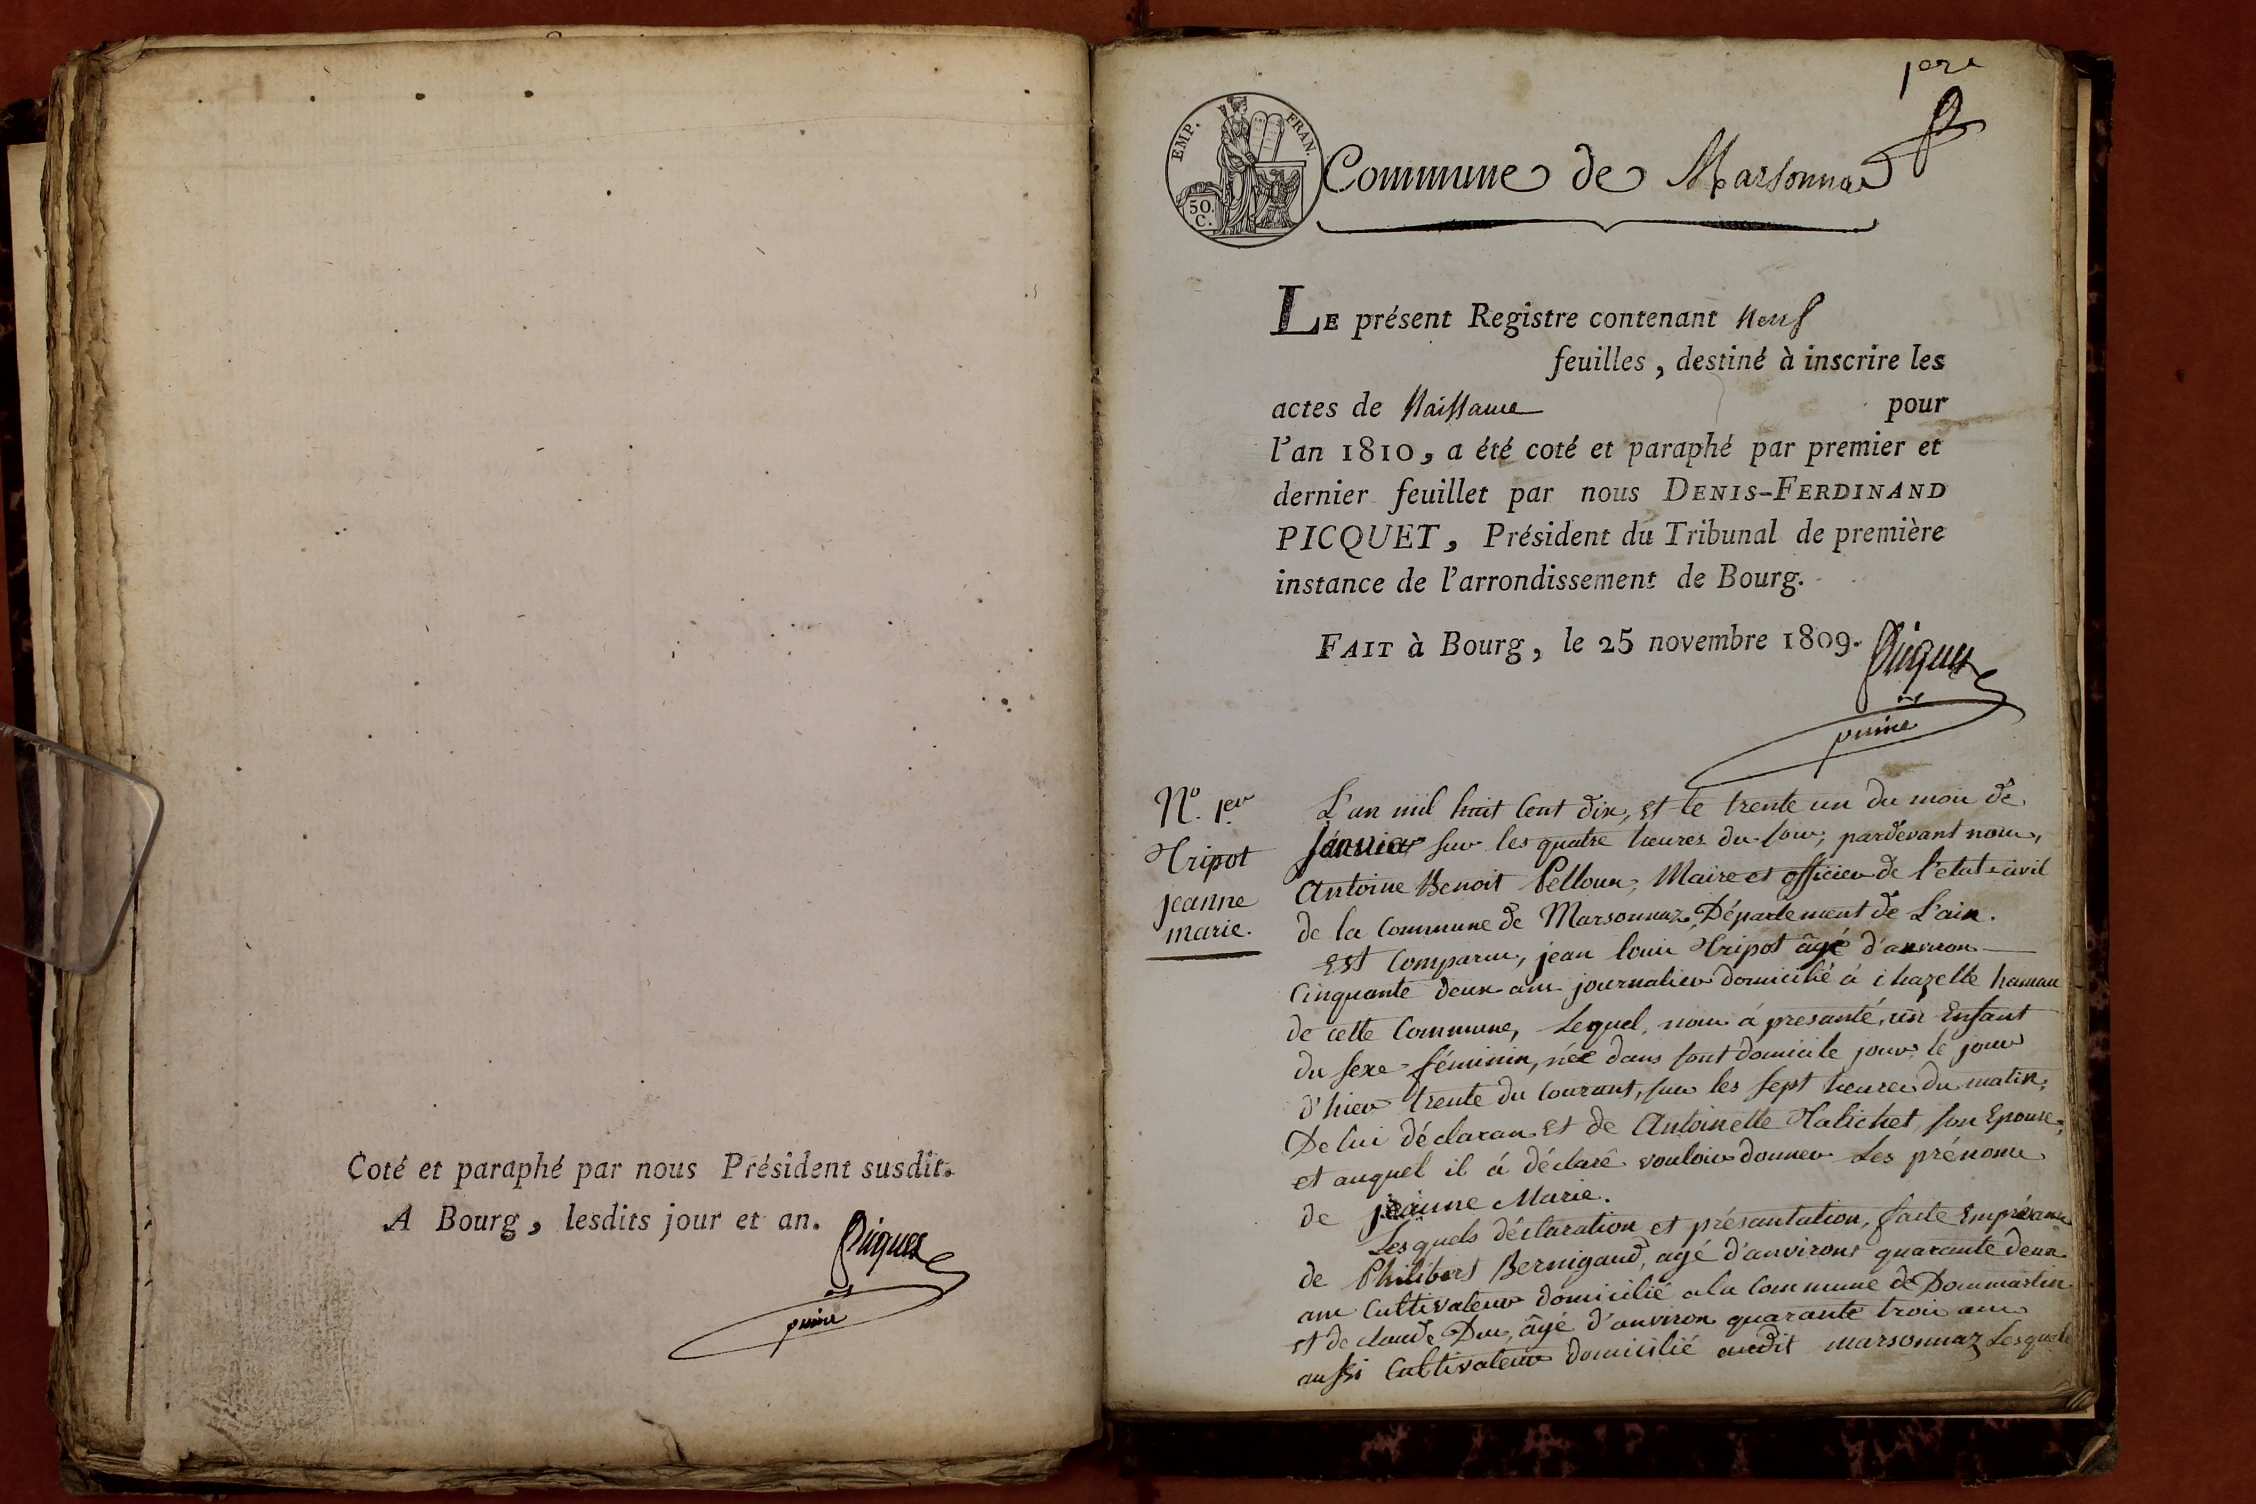 Coté et paraphé par nous Président susdit.
A Bourg, lesdits jour et an.
Picquet
1ere
EMP. FRAN.
50
C.
Commune de Marsonna
LE présent Registre contenant Neuf
feuilles, destiné à inscrire les
actes de Naissance pour
l'an 1810, a été coté et paraphé par premier et
dernier feuillet par nous DENIS-FERDINAND
PICQUET, Président du Tribunal de première
instance de l'arrondissement de Bourg.
FAIT à Bourg, le 25 novembre 1809.
Picquet
N.º 1er
Tripot
jeanne
marie.
L'an mil huit Cent dix, et le trente un du mois de
Janvier sur les quatre heures du soir, pardevant nous,
Antoine Benoit Pelloux, Maire et officier de l'etat civil
de la Commune de Marsonnaz, Département de L'ain.
Est Comparu, jean louis Tripot âgé d'anviron
Cinquante deux ans journalier domicilié á chazelle hamau
de cette Commune, Lequel, nous á presanté, un Enfant
du sexe féminin, née dans sont domicile jour, le jour
d'hier trente du Courant, sur les sept heures du matin;
De lui déclaran Et de Antoinette Talichet, son Epouse;
et auquel il á déclaré vouloir donner Les prénoms
de jeanne Marie.
Lesquels déclaration et présantation, faite En présance
de Philibert Bernigaud, agé d'anvirons quarante deux
ans Cultivateur domicilié a la Commune de Dommartin
Et de claude Duc, âgé d'anviron quarante trois ans
aussi Cultivateur domicilié audit marsonnaz Lesquels